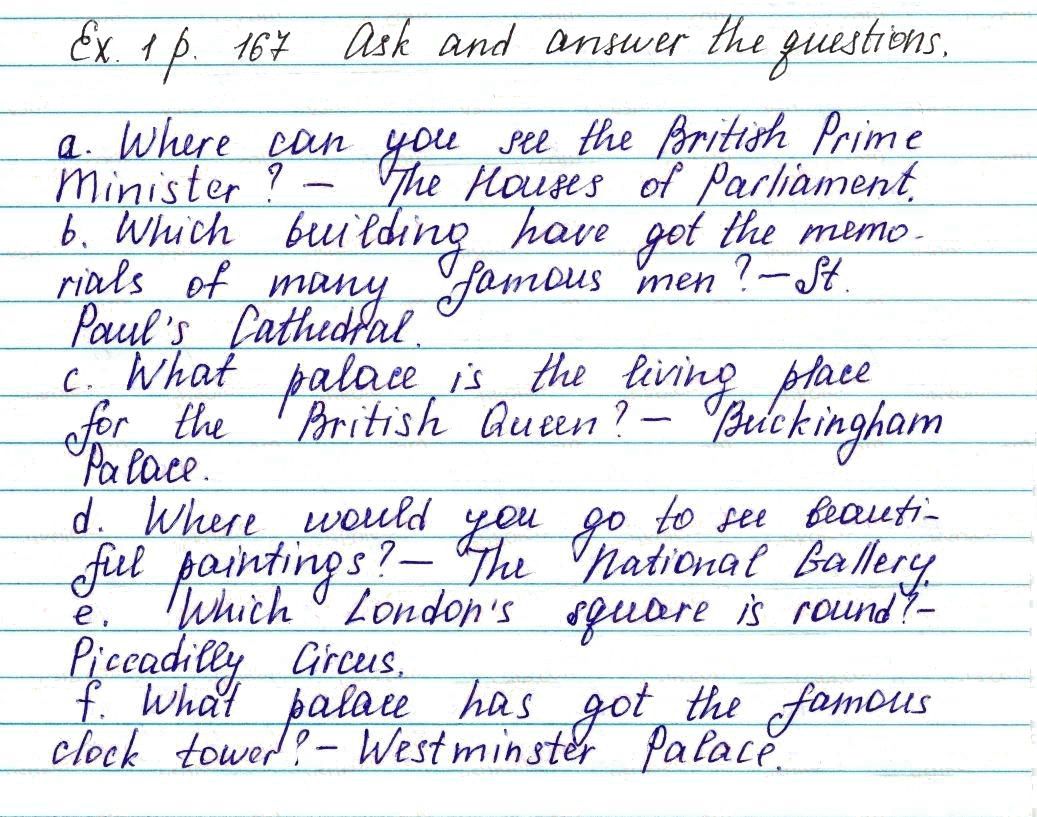 Ex. 1 p. 167 Ask and answer the questions.
a. Where can you see the British Prime
Minister? – The Houses of Parliament.
b. Which building have got the memo-
rials of many famous men? – St.
Paul's Cathedral.
c. What palace is the living place
for the British Queen? – Buckingham
Palace.
d. Where would you go to see beauti-
ful paintings? – The National Gallery.
e. Which London's square is round? –
Piccadilly Circus.
f. What palace has got the famous
clock tower? – Westminster Palace.